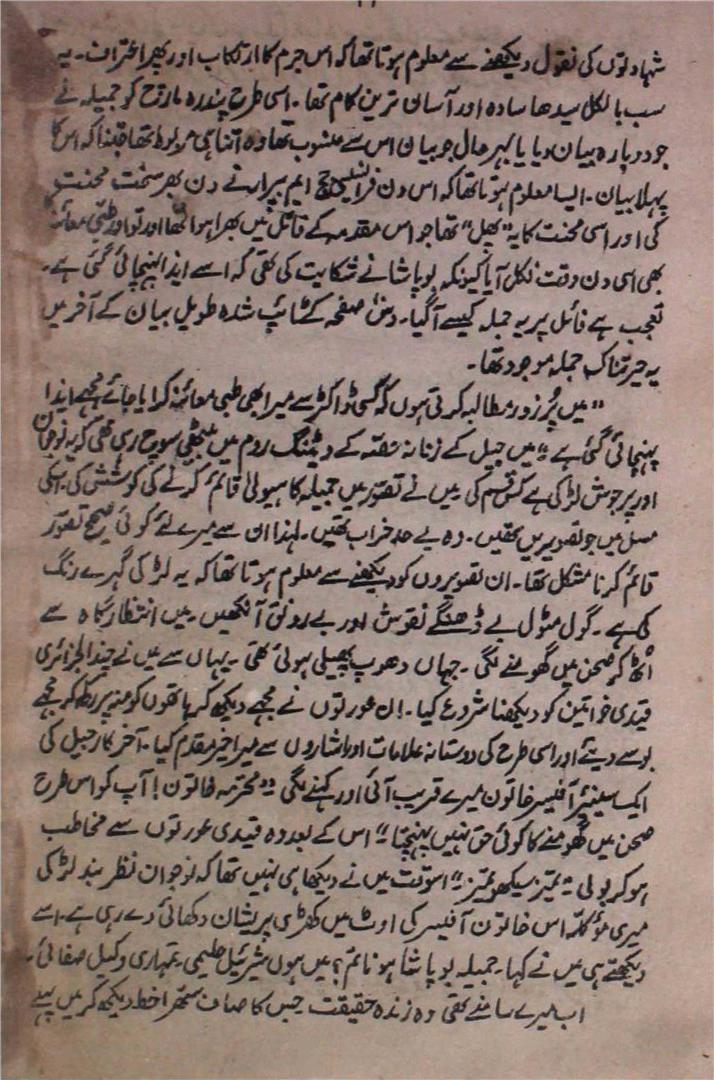 ۱۱
شہادتوں کی نقول دیکھنے سے معلوم ہوتا تھا کہ اس جرم کا ارتکاب اور پھر اعتراف۔ یہ
سب بالکل سیدھا سادہ اور آسان ترین کام تھا۔ اسی طرح پندرہ مارچ کو جمیلہ نے
جو دوبارہ بیان دیا یا بہر حال جو بیان اس سے منسوب تھا وہ اتنا ہی مربوط تھا جتنا کہ اس کا
پہلا بیان۔ ایسا معلوم ہوتا تھا کہ اس دن فرانسیسی جج ایم بیرار نے دن بھر سخت محنت
کی اور اسی محنت کا یہ "پھل" تھا جو اس مقدمہ کے فائل میں بھرا ہوا تھا اور تو اور طبی معائنہ
بھی اسی دن وقت نکل آیا کیونکہ بوپاشا نے شکایت کی تھی کہ اسے ایذا پہنچائی گئی ہے۔
تعجب ہے فائل پر یہ جملہ کیسے آگیا۔ دس صفحہ کے ٹائپ شدہ طویل بیان کے آخر میں
یہ حیرتناک جملہ موجود تھا۔
"میں پُر زور مطالبہ کرتی ہوں کہ کسی ڈاکٹر سے میرا بھی طبی معائنہ کرایا جائے مجھے ایذا
پہنچائی گئی ہے" میں جیل کے زنانہ حصہ کے ویٹنگ روم میں بیٹھی سوچ رہی تھی کہ یہ نوجوان
اور پرجوش لڑکی ہے کس قسم کی۔ میں نے تصور میں جمیلہ کا ہیولیٰ قائم کرنے کی کوشش کی۔ اسکی
مسل میں جو تصویریں تھیں۔ وہ بے حد خراب تھیں۔ لہذا ان سے میرے لئے کوئی صحیح تصور
قائم کرنا مشکل تھا۔ ان تصویروں کو دیکھنے سے معلوم ہوتا تھا کہ یہ لڑکی گہرے رنگ
کی ہے۔ گول مٹول بے ڈھنگے نقوش اور بے رونق آنکھیں۔ میں انتظار گاہ سے
اٹھ کر صحن میں گھومنے لگی۔ جہاں دھوپ پھیلی ہوئی تھی۔ یہاں سے میں نے چند الجزائری
قیدی خواتین کو دیکھنا شروع کیا۔ ان عورتوں نے مجھے دیکھ کر ہاتھوں کو منہ پر رکھ کر مجھے
بوسے دیئے اور اسی طرح کی دوستانہ علامات اور اشاروں سے میرا خیر مقدم کیا۔ آخر کار جیل کی
ایک سینئر آفیسر خاتون میرے قریب آئی اور کہنے لگی "محترمہ خاتون! آپ کو اس طرح
صحن میں گھومنے کا کوئی حق نہیں پہنچتا" اس کے بعد وہ قیدی عورتوں سے مخاطب
ہو کر بولی "تمیز سیکھو تمیز" اسوقت میں نے دیکھا ہی نہیں تھا کہ نوجوان نظر بند لڑکی
میری مؤکلہ اس خاتون آفیسر کی اوٹ میں کھڑی پریشان دکھائی دے رہی ہے۔ اسے
دیکھتے ہی میں نے کہا۔ جمیلہ بوپاشا ہونا تم؟ میں ہوں حلیمی۔ تمہاری وکیل صفائی۔
اب میرے سامنے تھی وہ زندہ حقیقت جس کا صاف ستھرا خط دیکھ کر میں پہلے